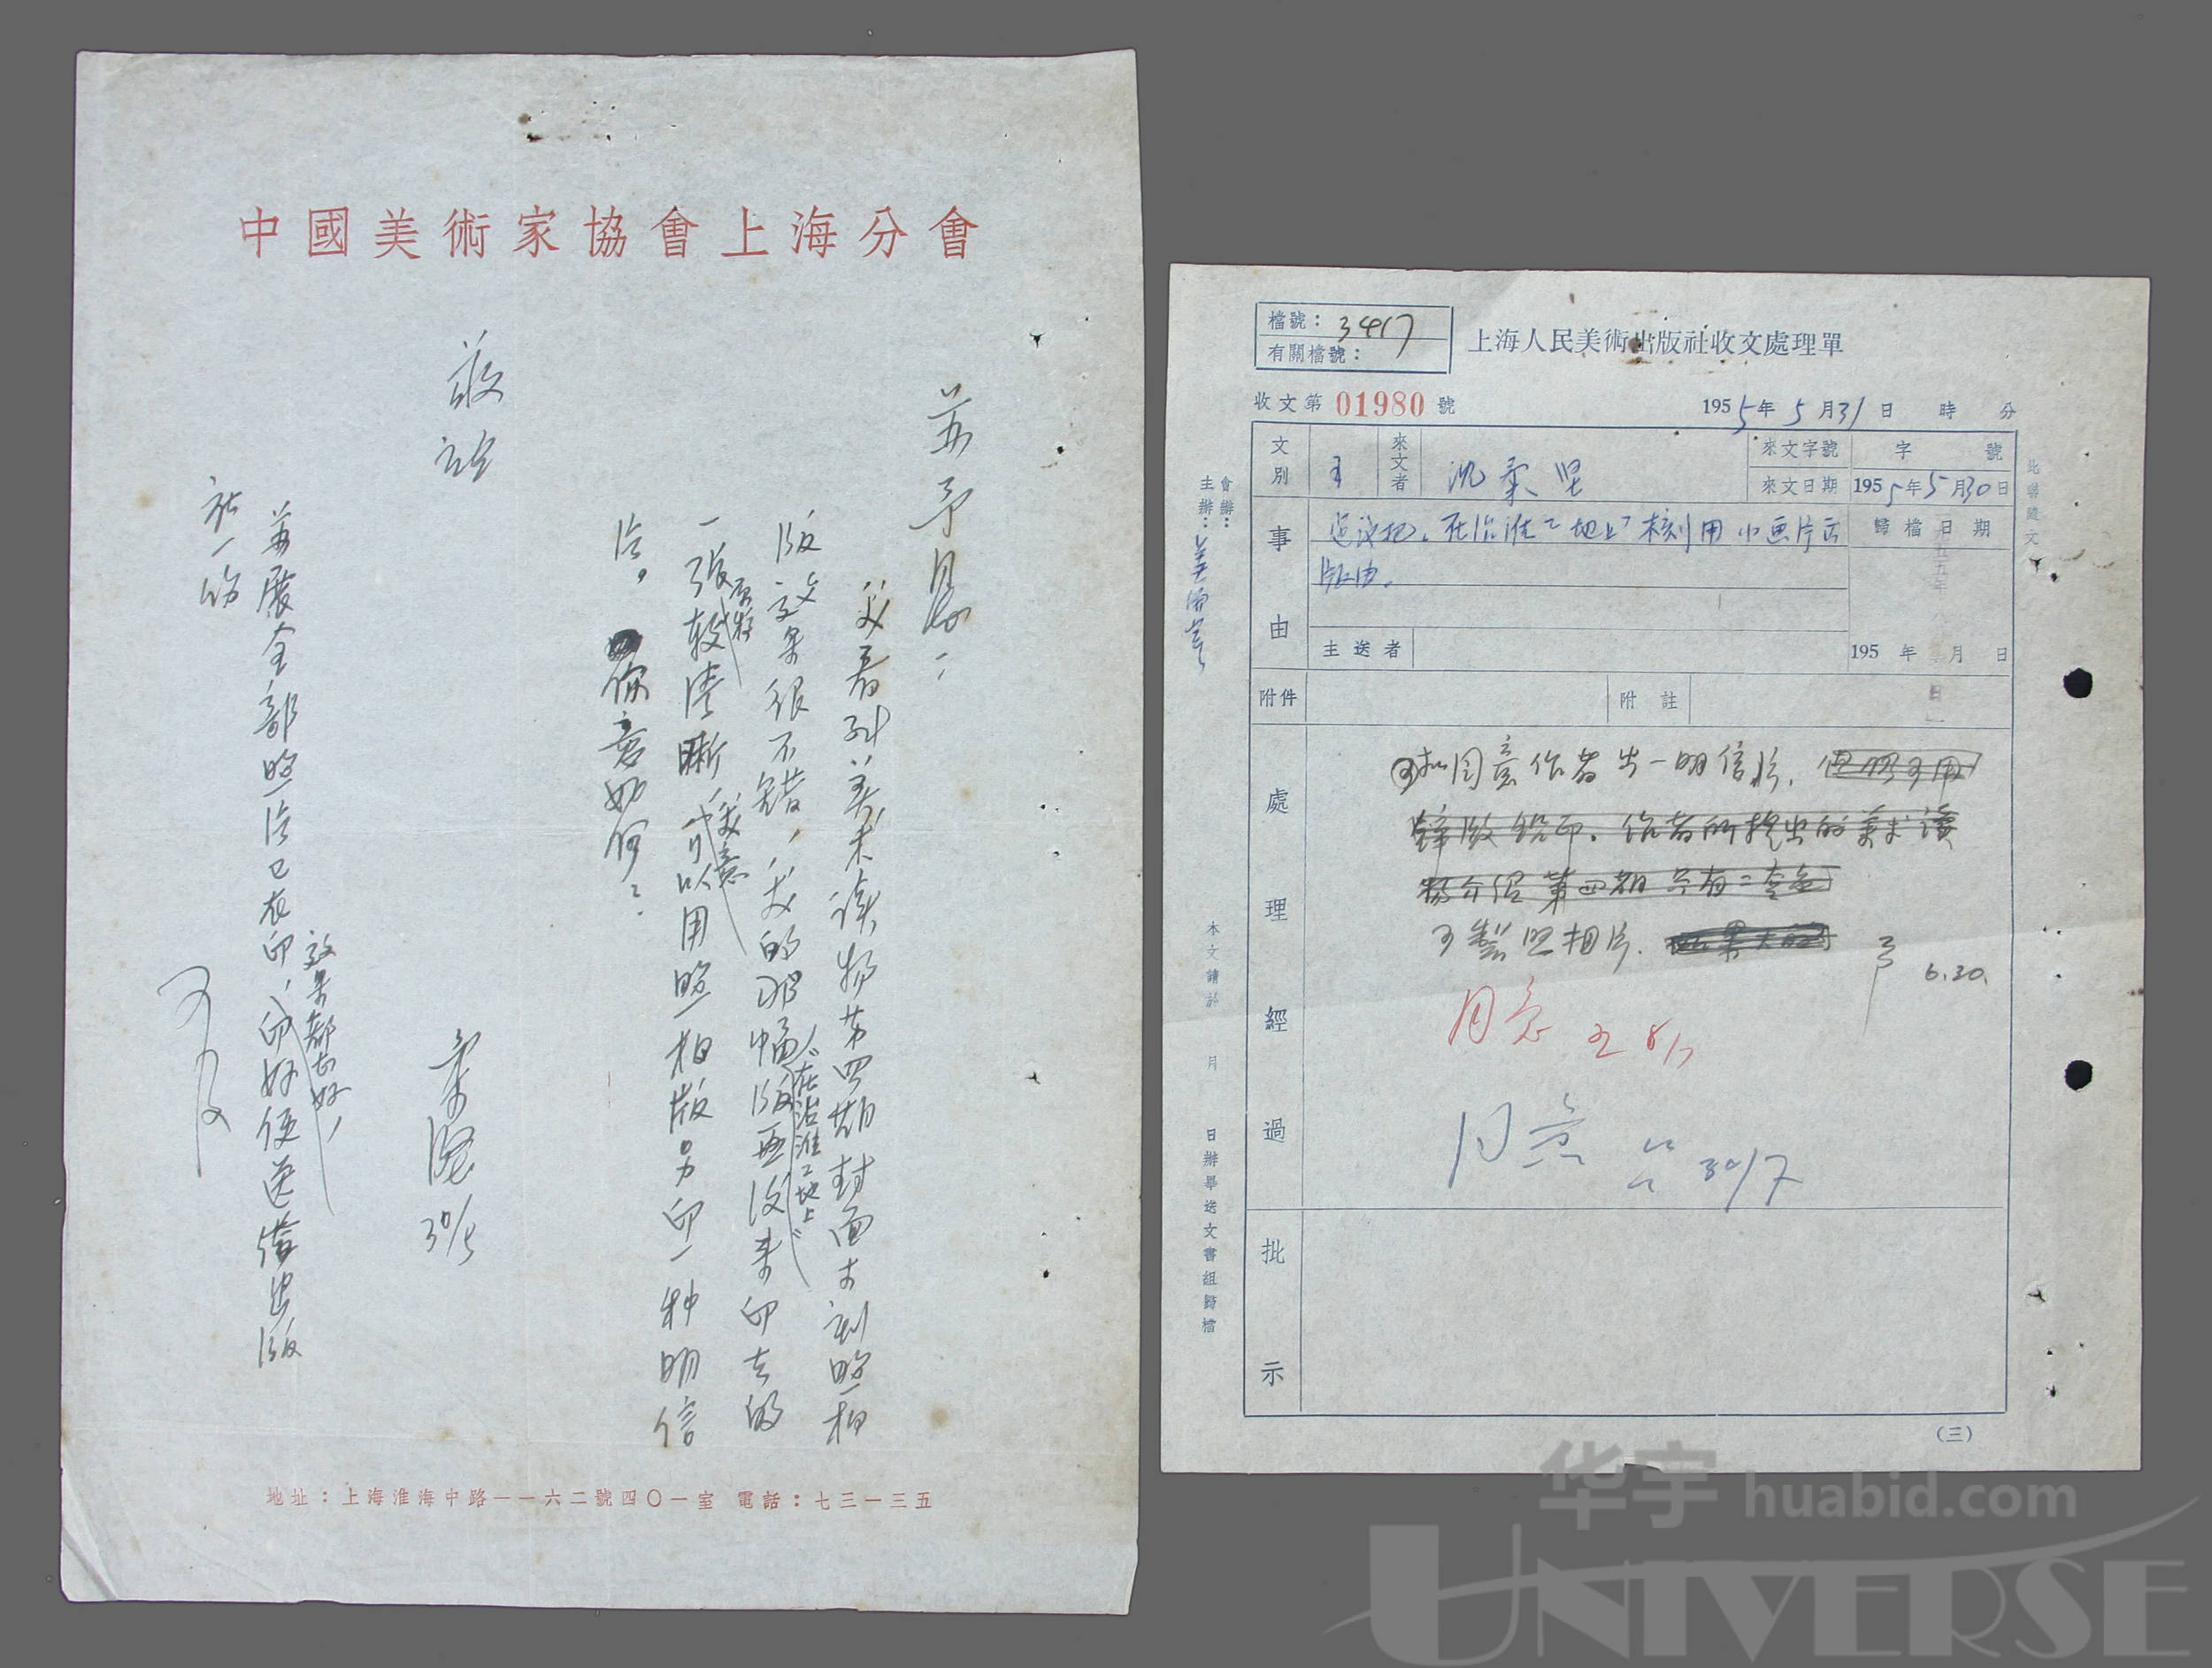 中國美術家協會上海分會
苏予局:
我看到美术读物第四期封面木刻照相
版效果很不错,我的那幅"在治淮工地上"版画设来印出的
一张较清晰,我意可以用照相版另印一种明信
片。你意如何?
敬礼
柔坚 30/5
美展全部照片已在印,效果都尚好,印好便送贵出版
社一份
又及
地址:上海淮海中路一一六二號四〇一室 電話:七三一三五
檔號:3417
有關檔號:
上海人民美術出版社收文處理單
收文第 01980 號
1955年5月31日 時 分
文別
來文者 沈柔坚
來文字號 字 號
來文日期 1955年5月30日
事由
建议把"在治淮工地上"木刻用小画片出
版由。
歸檔日期
195 年 月 日
主送者
附件
附註
處理經過
同意作者出一明信片,但仍可用
锌版铅印。作者所提出的美术读
物介绍第四期只有二套色
可製照相片.
6.20.
同意
同意 30/7
批示
(三)
會辦:
主辦:
此聯隨文
本文請於 月 日辦畢送文書組歸檔
华宇 huabid.com
UNIVERSE